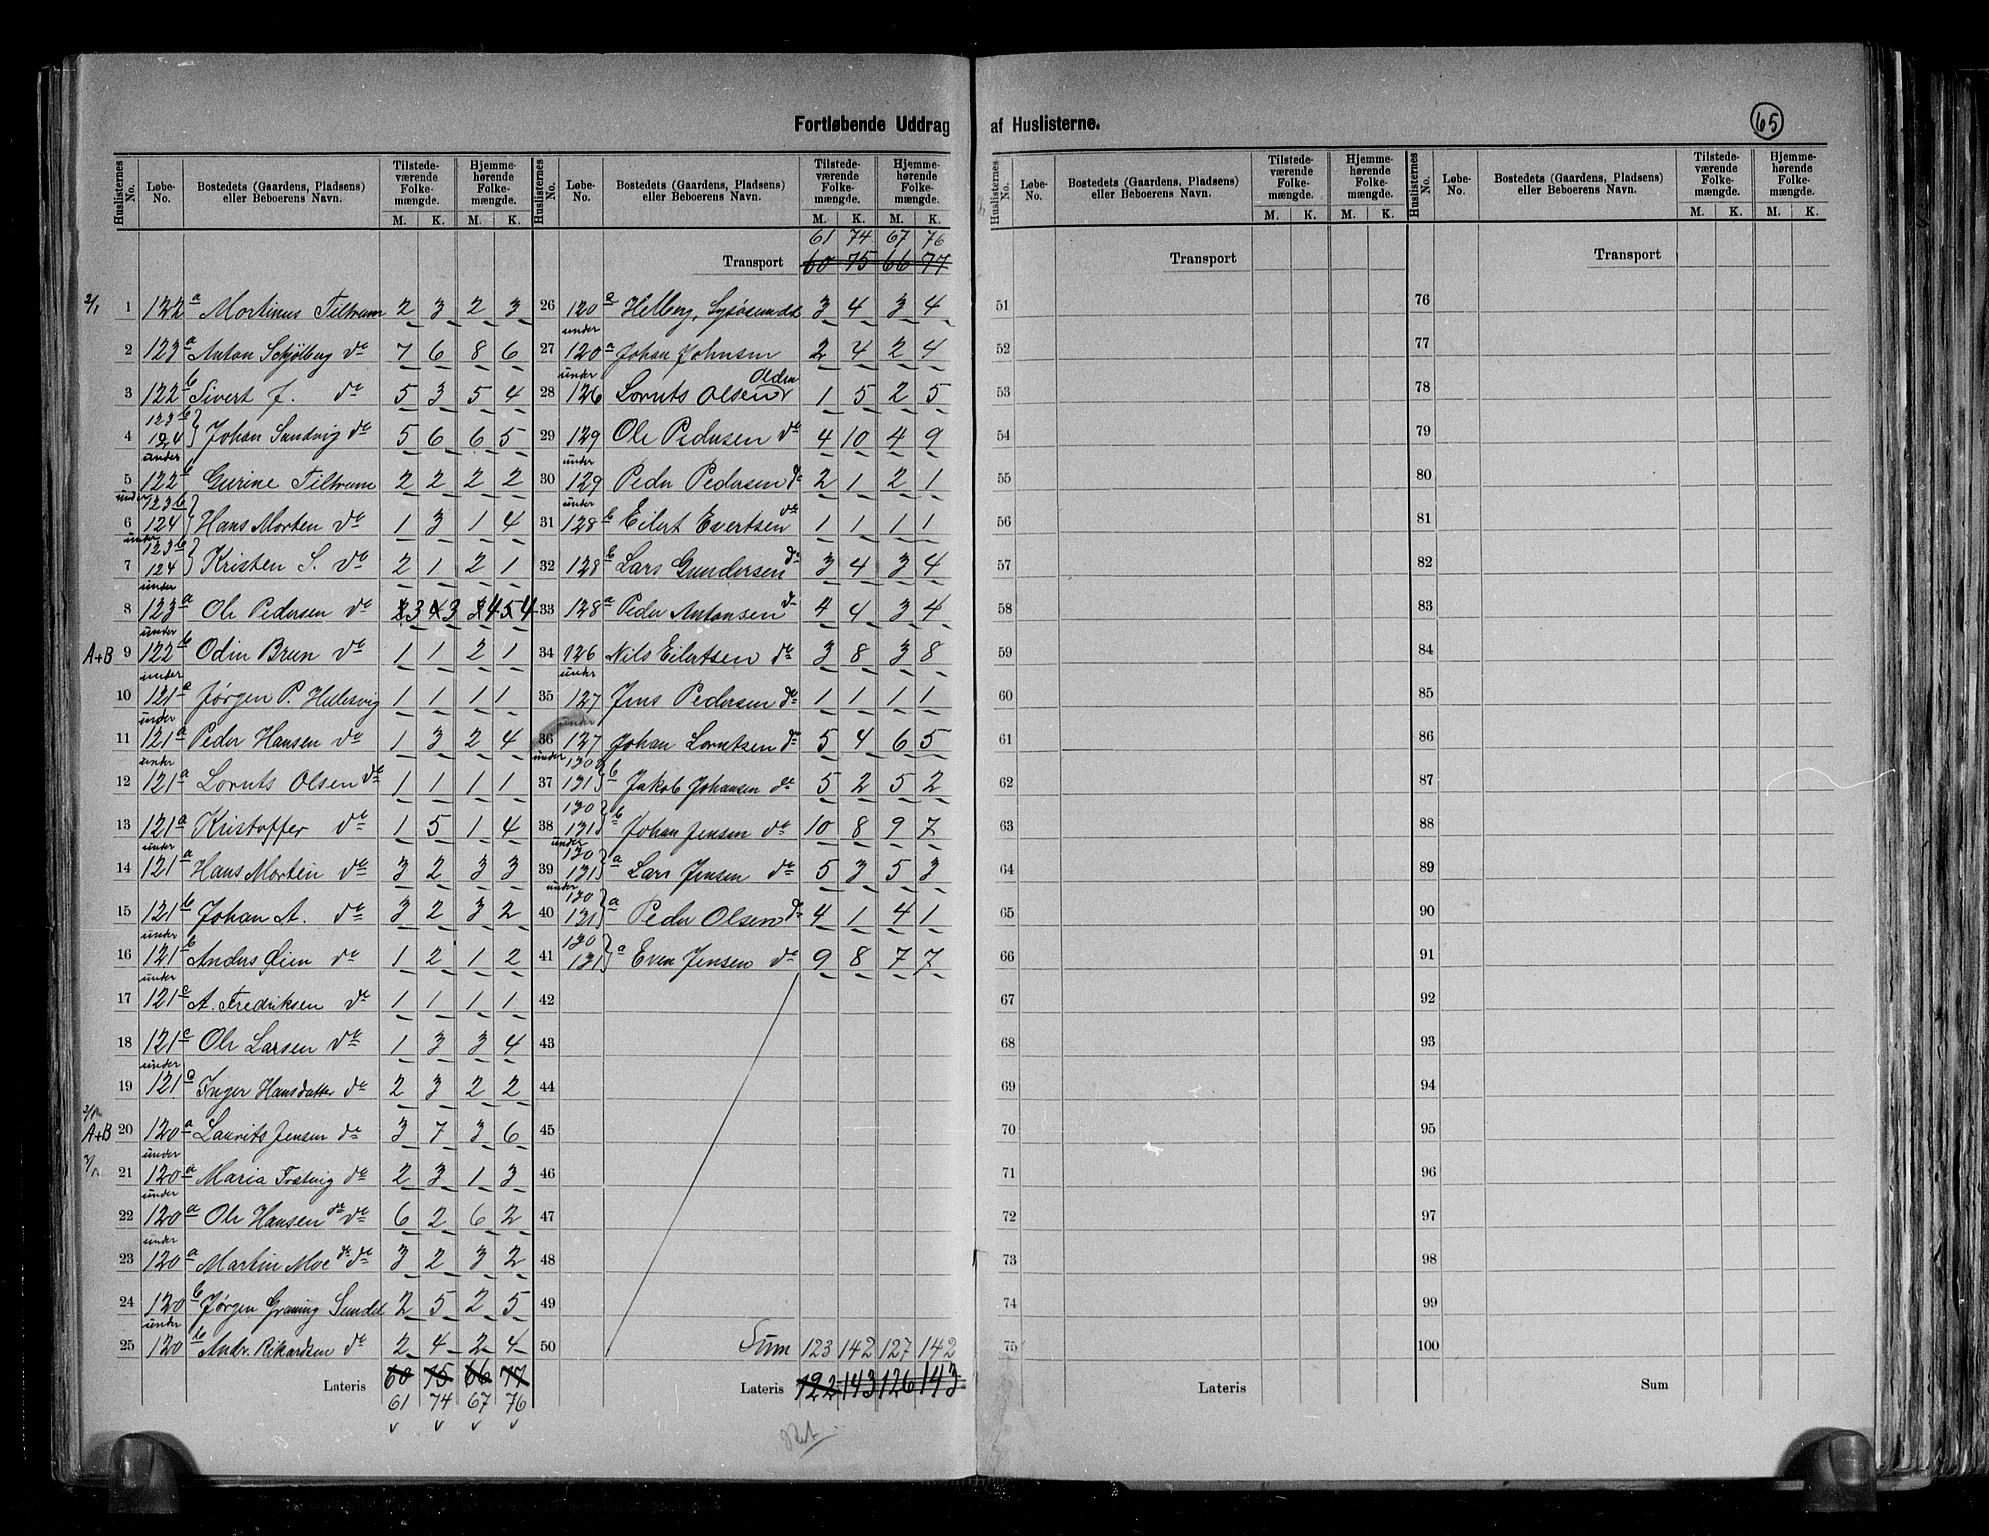 Fortløbende Uddrag af Huslisterne.
65
Huslisternes No. Løbe-No. Bostedets (Gaardens, Pladsens) eller Beboerens Navn. Tilstedeværende Folkemængde. M. K. Hjemmehørende Folkemængde. M. K.
2/1 1 122a Mortinus Tiltrum 2 3 2 3
2 123a Anton Schjølberg do 7 6 8 6
3 122b Sivert J. do 5 3 5 4
4 123b 124 Johan Sandvig do 5 6 6 5
5 under 122b Gurine Tiltrum 2 2 2 2
6 under 123b 124 Hans Morten do 1 3 1 4
7 under 123b 124 Kristen S. do 2 1 2 1
8 under 123a Ole Pedersen do 3 3 4 4
A+B 9 under 122b Odin Brun do 1 1 2 1
10 under 121a Jørgen P. 1 1 1 1
11 under 121a Peder Hansen do 1 3 2 4
12 under 121a Lornts Olsen do 1 1 1 1
13 121a Kristoffer do 1 5 1 4
14 under 121a Hans Morten do 3 2 3 3
15 121b Johan A. do 3 2 3 2
16 under 121b Anders Øien do 1 2 1 2
17 under 121c A. Fredriksen do 1 1 1 1
18 121c Ole Larsen do 1 3 3 4
19 under 121c Inger Hansdatter do 2 3 2 2
2/1 A+B 20 120a Laurits Jensen do 3 7 3 6
21 under 120a Maria do 2 3 1 3
22 under 120a Ole Hansen do do 6 2 6 2
23 under 120a Martin Moe do do 3 2 3 2
24 120b Jørgen Graning Sundet 2 5 2 5
25 under 120b Andr. Rikardsen do 2 4 2 4
Lateris 60 75 66 77
61 74 67 76
v v v v
Huslisternes No. Løbe-No. Bostedets (Gaardens, Pladsens) eller Beboerens Navn. Tilstedeværende Folkemængde. M. K. Hjemmehørende Folkemængde. M. K.
61 74 67 76
Transport 60 75 66 77
26 120a Helberg, Sysøsundet 3 4 3 4
27 under 120a Johan Johnsen 2 4 2 4
28 under 126 Lornts Olsen Olden 1 5 2 5
29 129 Ole Pedersen do 4 10 4 9
30 under 129 Peder Pedersen do 2 1 2 1
31 under 128b Eilert Evertsen do 1 1 1 1
32 128b Lars Gundersen do 3 4 3 4
33 128a Peder Antonsen do 4 4 3 4
34 126 Nils Eilertsen do 3 8 3 8
35 under 127 Jens Pedersen do 1 1 1 1
36 under 127 Johan Lorntsen do 5 4 6 5
37 under 130 131 b Jakob Johansen do 5 2 5 2
38 130 131 b Johan Jensen do 10 8 9 7
39 under 130 131 a Lars Jensen do 5 3 5 3
40 under 130 131 a Peder Olsen do 4 1 4 1
41 130 131 a Even Jensen do 9 8 7 7
42
43
44
45
46
47
48
49
50 Sum 123 142 127 142
Lateris 122 143 126 143
Huslisternes No. Løbe-No. Bostedets (Gaardens, Pladsens) eller Beboerens Navn. Tilstedeværende Folkemængde. M. K. Hjemmehørende Folkemængde. M. K.
Transport
51
52
53
54
55
56
57
58
59
60
61
62
63
64
65
66
67
68
69
70
71
72
73
74
75
Lateris
Huslisternes No. Løbe-No. Bostedets (Gaardens, Pladsens) eller Beboerens Navn. Tilstedeværende Folkemængde. M. K. Hjemmehørende Folkemængde. M. K.
Transport
76
77
78
79
80
81
82
83
84
85
86
87
88
89
90
91
92
93
94
95
96
97
98
99
100
Sum